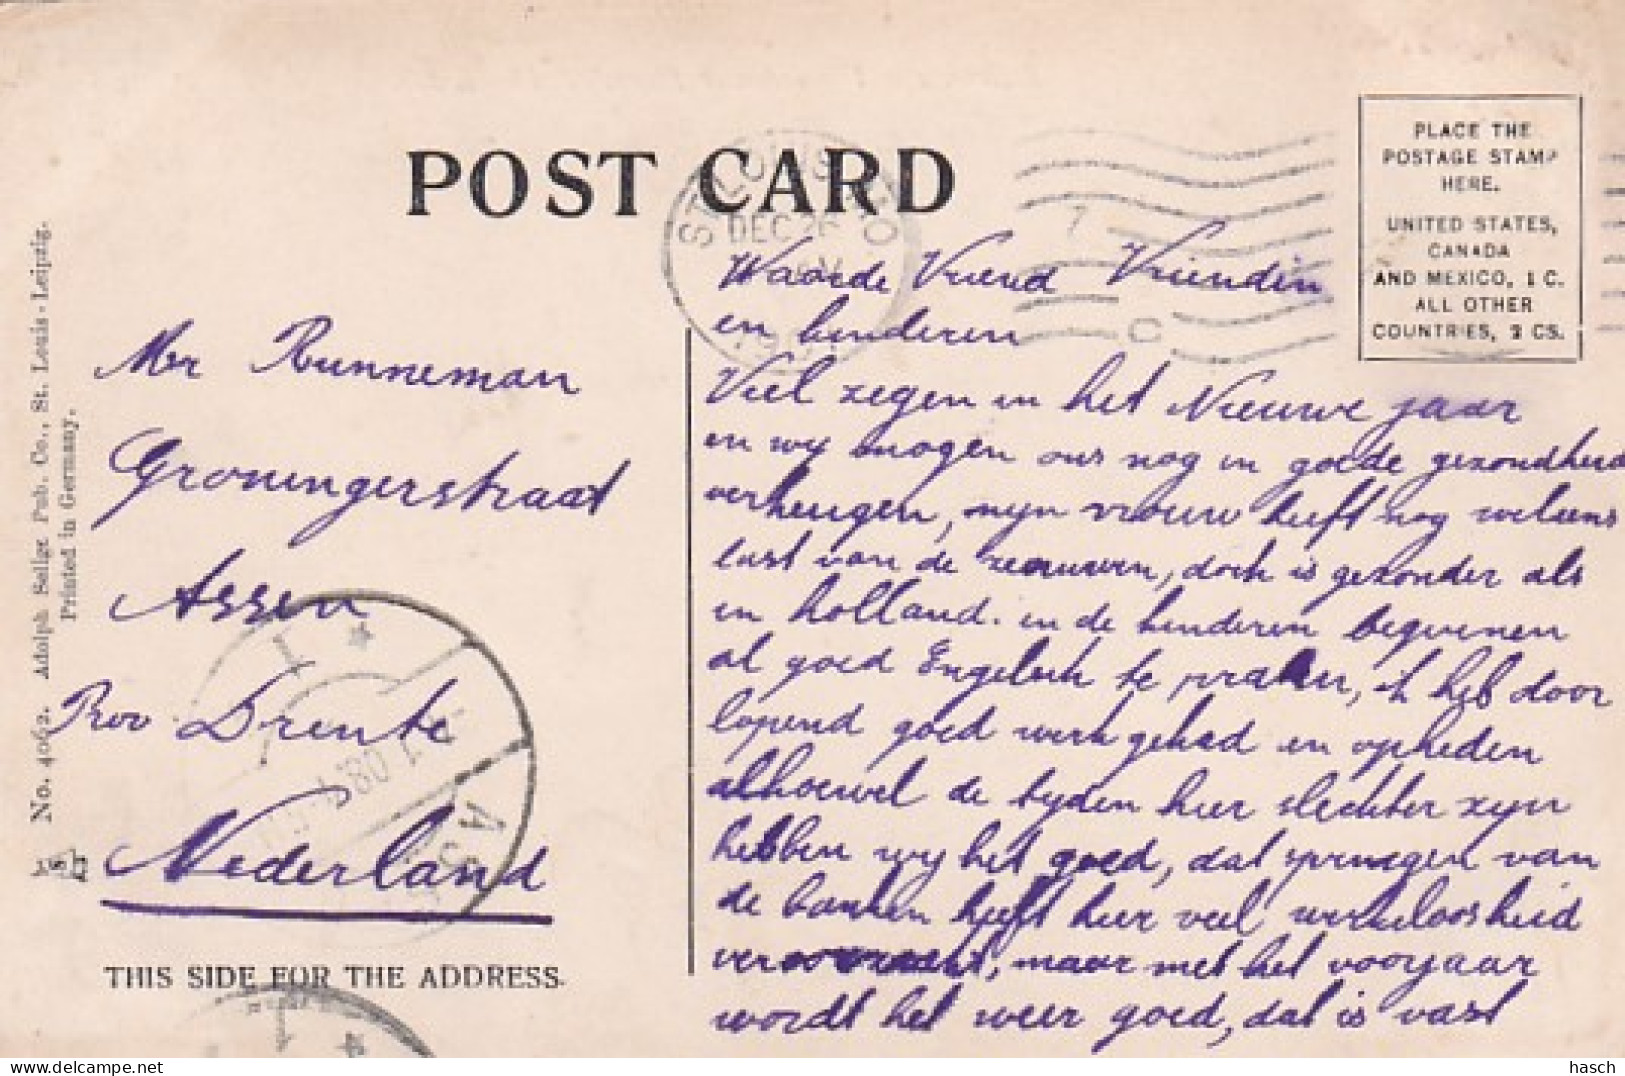 POST CARD
ST. LOUIS MO
DEC 26
7
C
PLACE THE
POSTAGE STAMP
HERE.
UNITED STATES,
CANADA
AND MEXICO, 1 C.
ALL OTHER
COUNTRIES, 2 CS.
No. 4062. Adolph Selige Pub. Co., St. Louis - Leipzig.
Printed in Germany.
Mr Runneman
Groningerstraat
Assen
Prov Drente
Nederland
THIS SIDE FOR THE ADDRESS.
Waarde Vriend Vriendin
en kinderen
Viel zegen in het Nieuwe jaar
en wy mogen ons nog in goede gezondheid
verheugen, myn vrouw heeft nog weleens
last van de zenuwen, doch is gezonder als
in holland. en de kinderen beginnen
al goed Engelsch te praten, ik heb door
lopend goed werk gehad en opheden
alhoewel de tyden hier slechter zyn
hebben wy het goed, dat springen van
de banken heeft hier veel werkeloosheid
veroorzaakt, maar met het voorjaar
wordt het weer goed, dat is vast
hasch